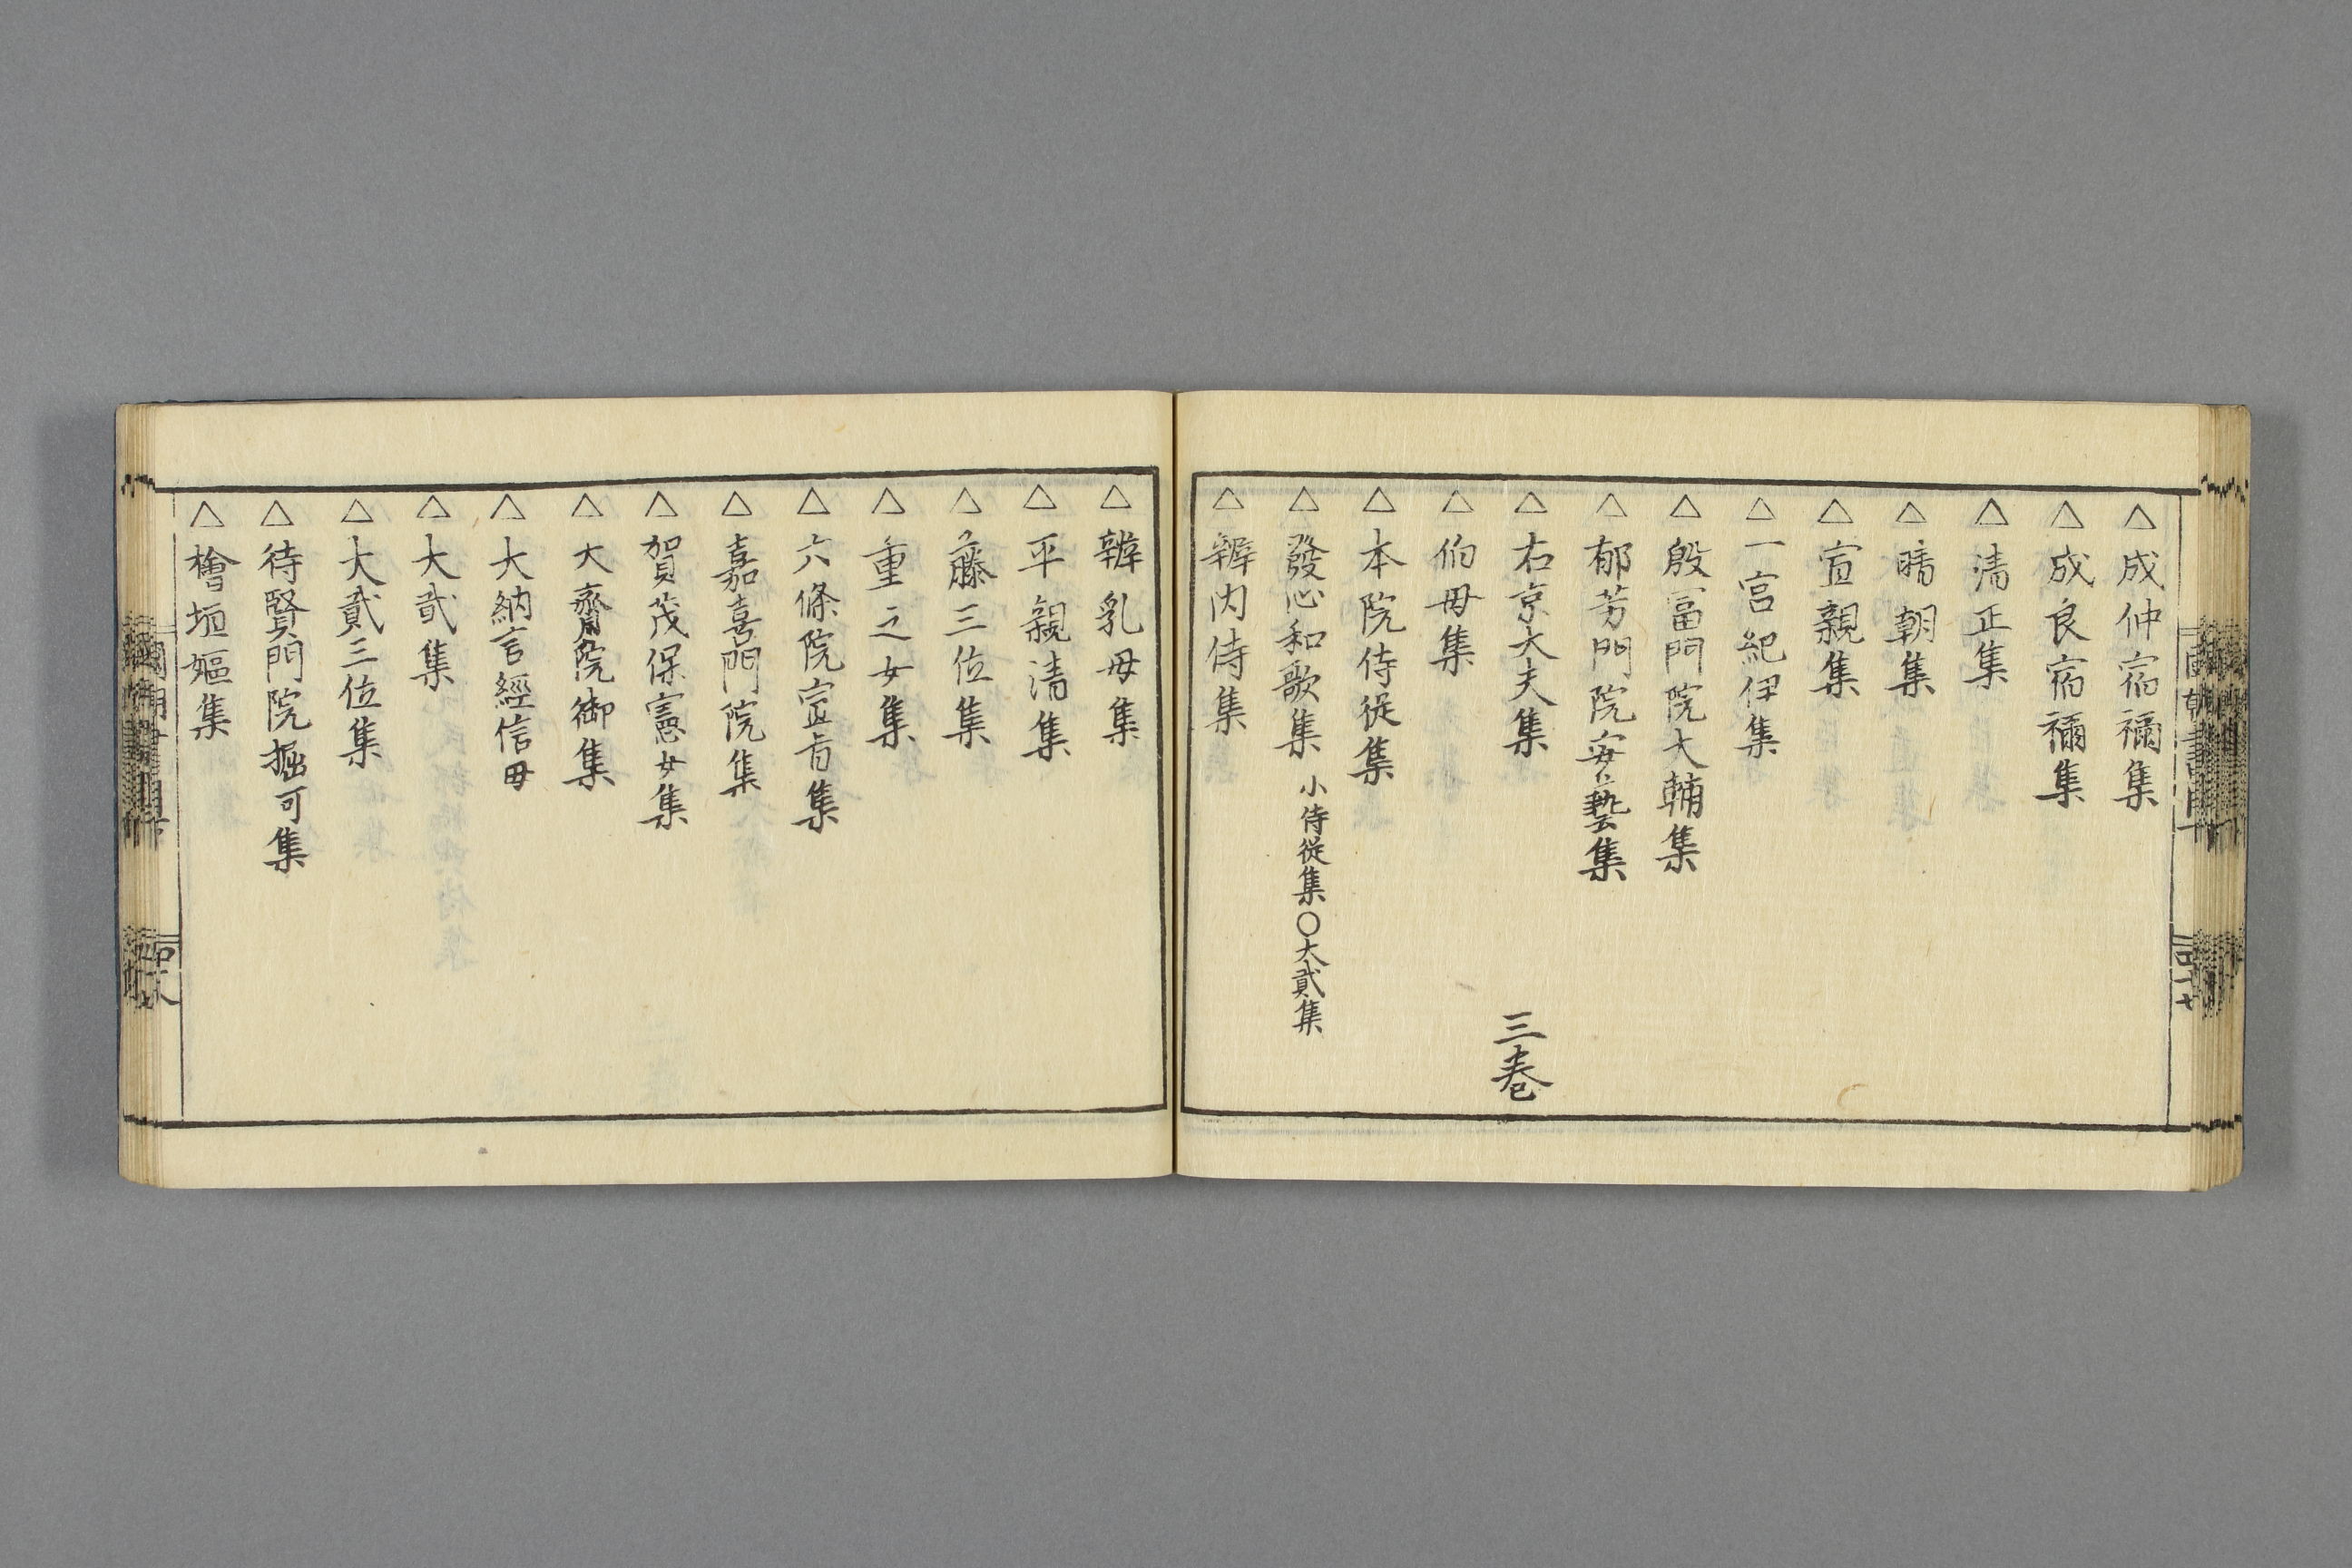 △成仲宿禰集
△成良宿禰集
△清正集
△晴朝集
△宣親集
△一宮紀伊集
△殷富門院大輔集
△郁芳門院安藝集
△右京大夫集 三巻
△伯母集
△本院侍従集
△發心和歌集 小侍従集〇大貳集
△辨内侍集
△辨乳母集
△平親清集
△藤三位集
△重之女集
△六條院宣旨集
△嘉喜門院集
△賀茂保憲女集
△大齋院御集
△大納言經信母
△大貳集
△大貳三位集
△待賢門院堀可集
△檜垣嫗集